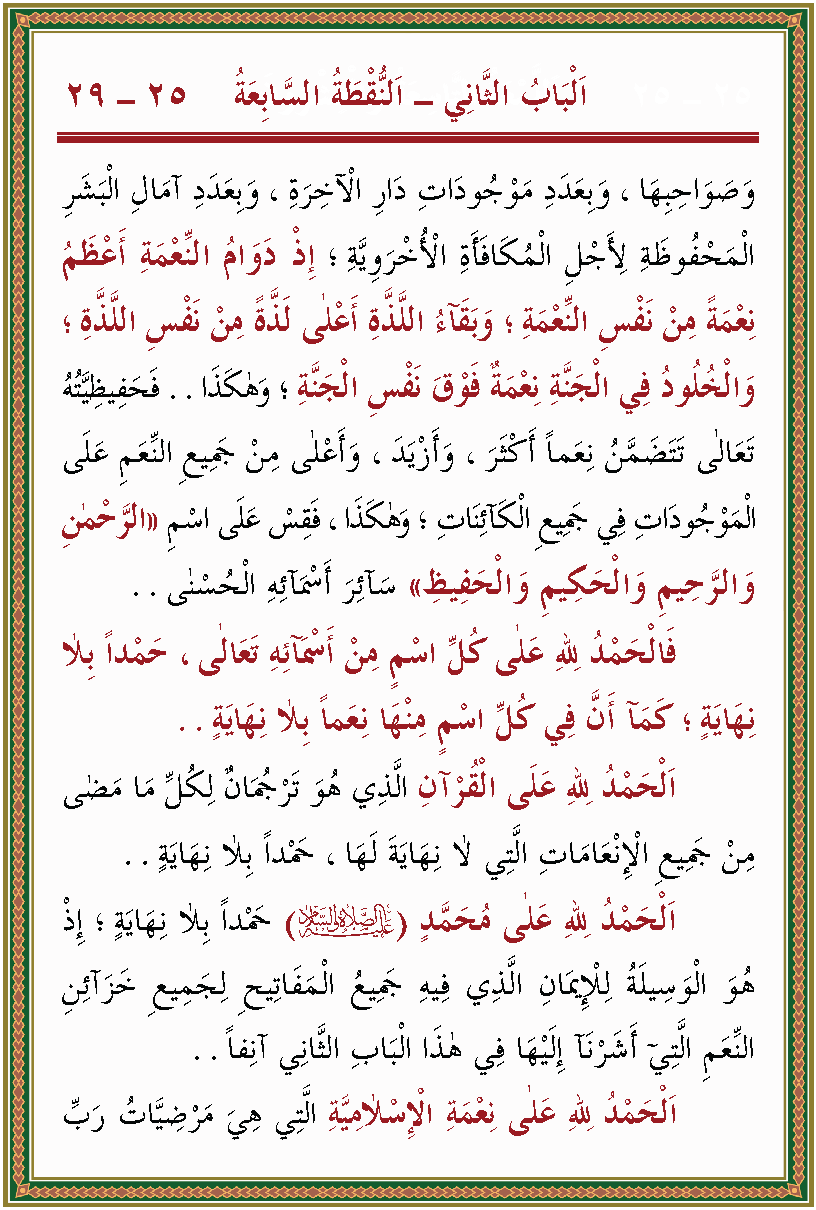 اَلْبَابُ الثَّانِي – اَلنُّقْطَةُ السَّابِعَةُ ٢٥ – ٢٩
وَصَوَاحِبِهَا ، وَبِعَدَدِ مَوْجُودَاتِ دَارِ الْآخِرَةِ ، وَبِعَدَدِ آمَالِ الْبَشَرِ
الْمَحْفُوظَةِ لِأَجْلِ الْمُكَافَأَةِ الْأُخْرَوِيَّةِ ؛ إِذْ دَوَامُ النِّعْمَةِ أَعْظَمُ
نِعْمَةً مِنْ نَفْسِ النِّعْمَةِ ؛ وَبَقَآءُ اللَّذَّةِ أَعْلٰى لَذَّةً مِنْ نَفْسِ اللَّذَّةِ ؛
وَالْخُلُودُ فِي الْجَنَّةِ نِعْمَةٌ فَوْقَ نَفْسِ الْجَنَّةِ ؛ وَهٰكَذَا . . فَحَفِيظِيَّتُهُ
تَعَالٰى تَتَضَمَّنُ نِعَماً أَكْثَرَ ، وَأَزْيَدَ ، وَأَعْلٰى مِنْ جَمِيعِ النِّعَمِ عَلَى
الْمَوْجُودَاتِ فِي جَمِيعِ الْكَآئِنَاتِ ؛ وَهٰكَذَا ، فَقِسْ عَلَى اسْمِ «الرَّحْمٰنِ
وَالرَّحِيمِ وَالْحَكِيمِ وَالْحَفِيظِ» سَآئِرَ أَسْمَآئِهِ الْحُسْنٰى . .
فَالْحَمْدُ لِلّٰهِ عَلٰى كُلِّ اسْمٍ مِنْ أَسْمَآئِهِ تَعَالٰى ، حَمْداً بِلَا
نِهَايَةٍ ؛ كَمَآ أَنَّ فِي كُلِّ اسْمٍ مِنْهَا نِعَماً بِلَا نِهَايَةٍ . .
اَلْحَمْدُ لِلّٰهِ عَلَى الْقُرْآنِ الَّذِي هُوَ تَرْجُمَانٌ لِكُلِّ مَا مَضٰى
مِنْ جَمِيعِ الْإِنْعَامَاتِ الَّتِي لَا نِهَايَةَ لَهَا ، حَمْداً بِلَا نِهَايَةٍ . .
اَلْحَمْدُ لِلّٰهِ عَلٰى مُحَمَّدٍ (عَلَيْهِ الصَّلَاةُ وَالسَّلَامُ) حَمْداً بِلَا نِهَايَةٍ ؛ إِذْ
هُوَ الْوَسِيلَةُ لِلْإِيمَانِ الَّذِي فِيهِ جَمِيعُ الْمَفَاتِيحِ لِجَمِيعِ خَزَآئِنِ
النِّعَمِ الَّتِيٓ أَشَرْنَآ إِلَيْهَا فِي هٰذَا الْبَابِ الثَّانِي آنِفاً . .
اَلْحَمْدُ لِلّٰهِ عَلٰى نِعْمَةِ الْإِسْلَامِيَّةِ الَّتِي هِيَ مَرْضِيَّاتُ رَبِّ